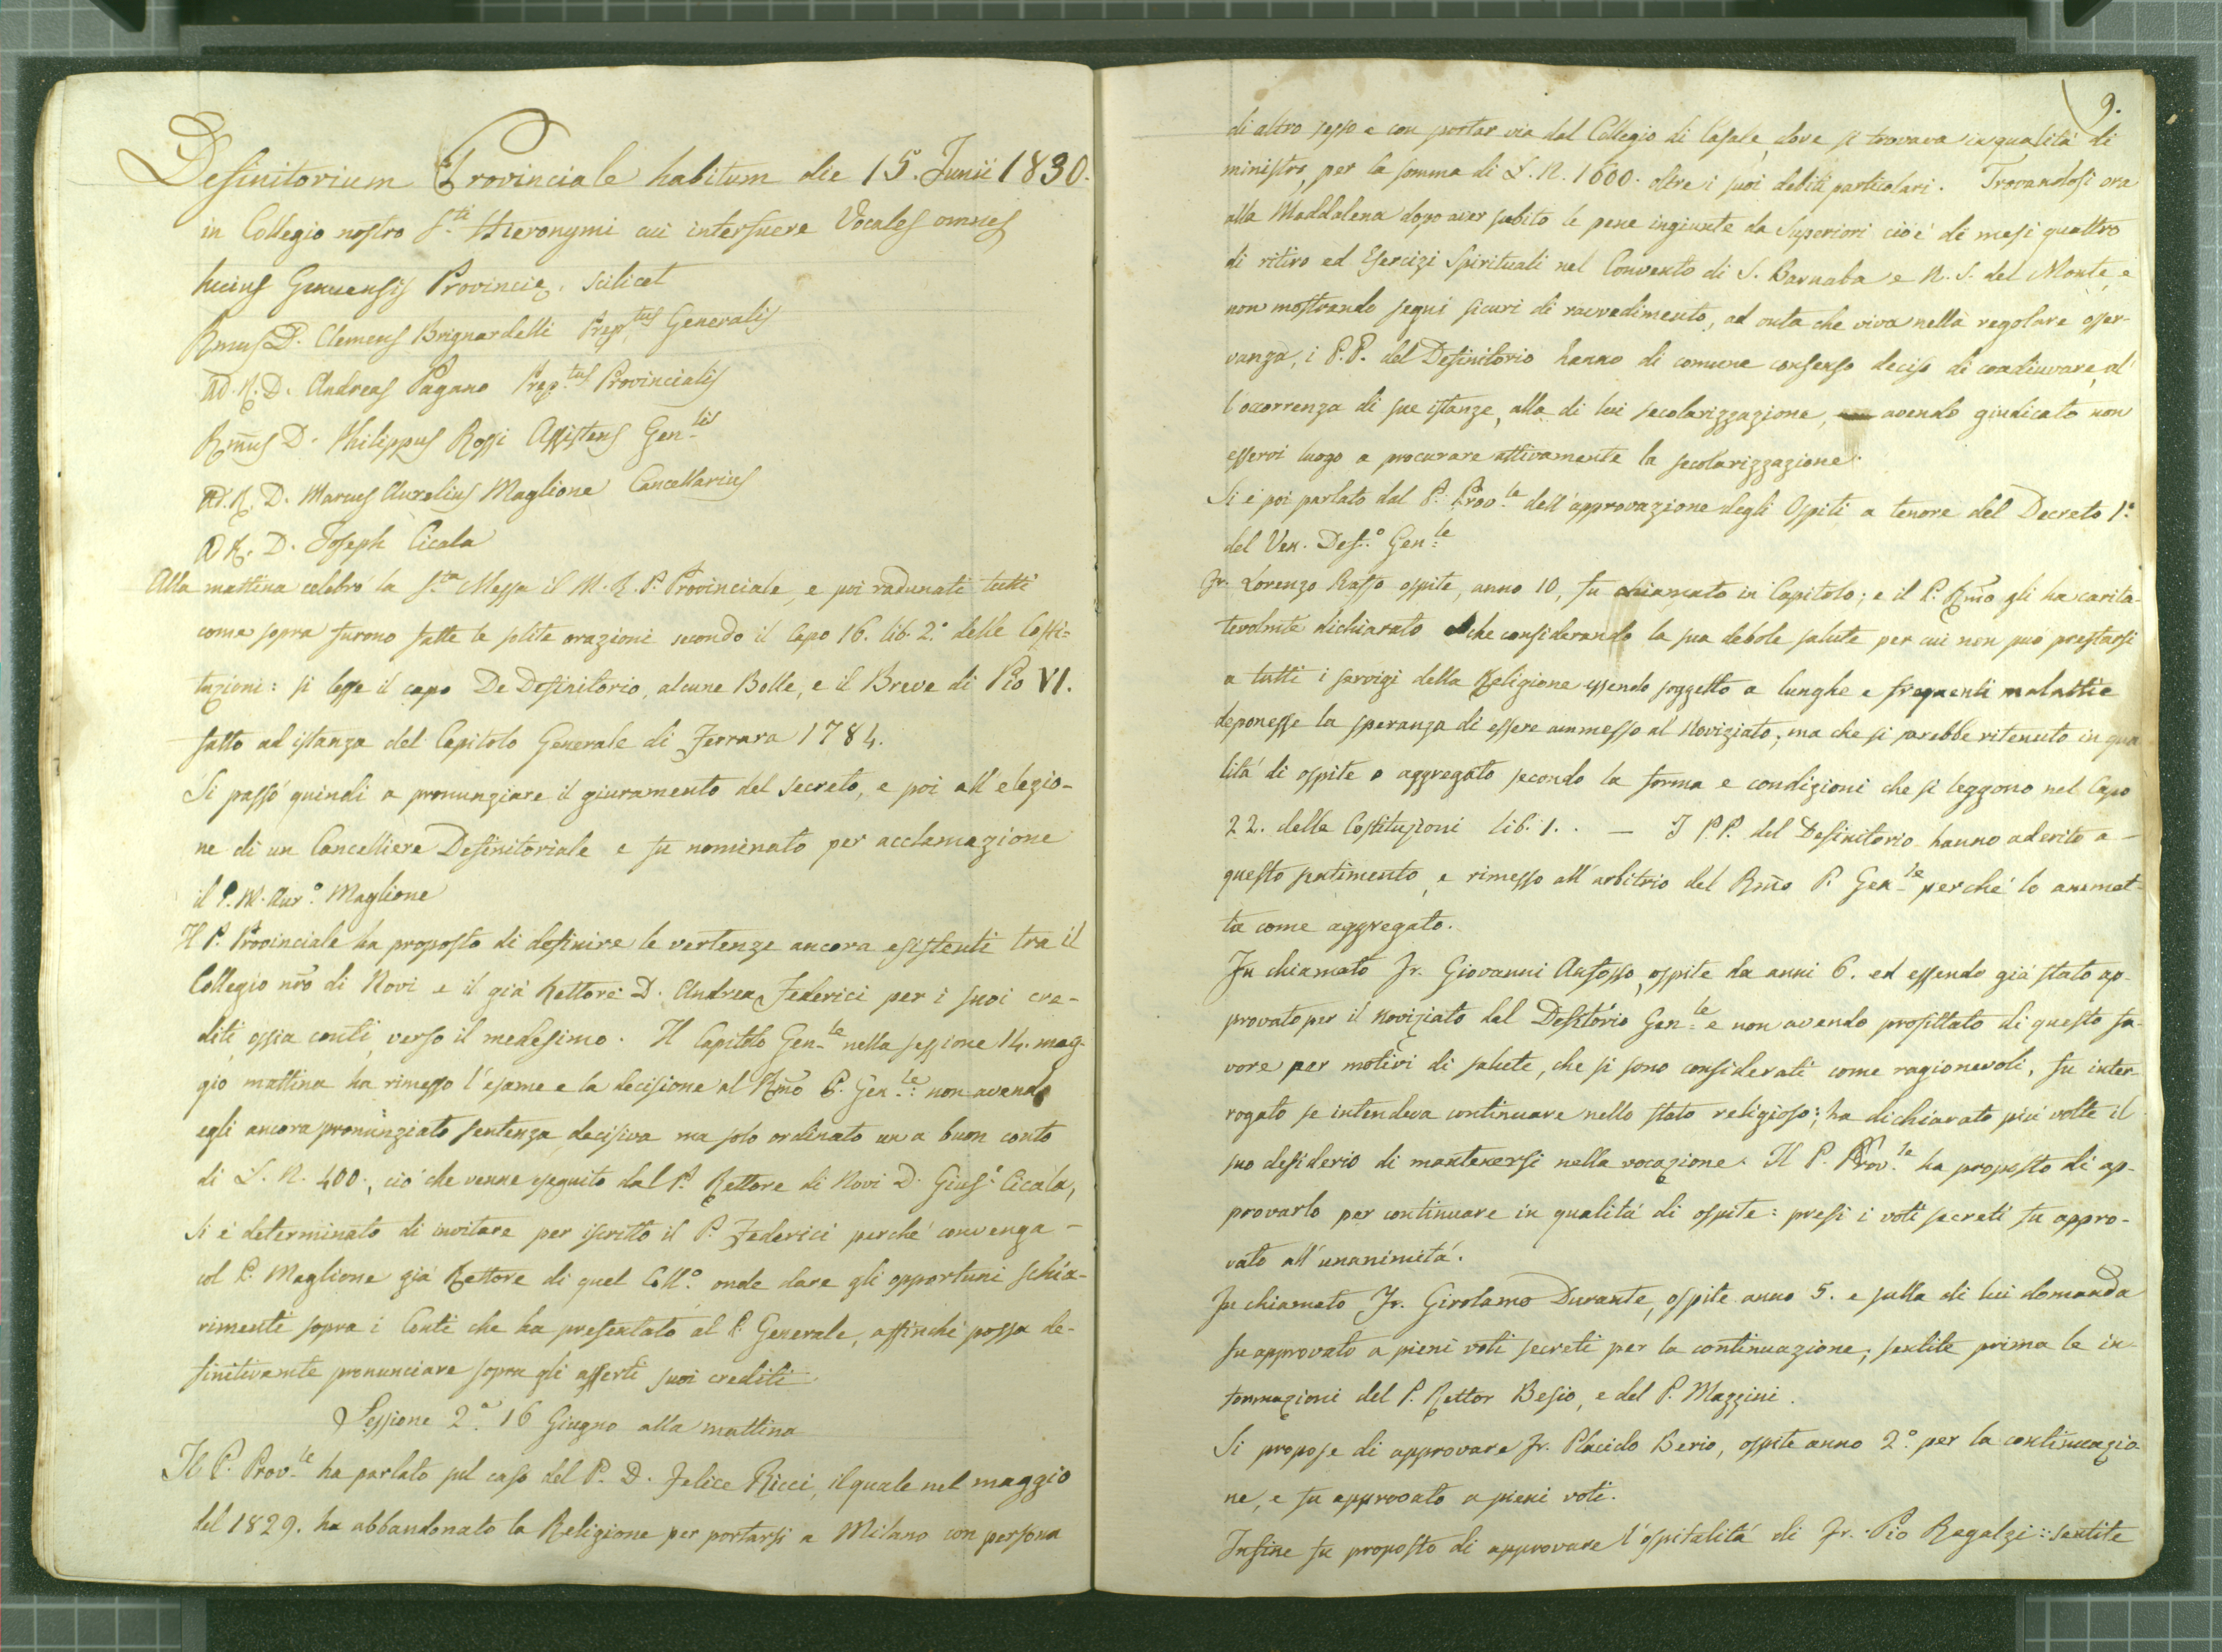 Definitorium Provinciale habitum die 15. Junii 1830.
in Collegio nostro S.ti Hieronymi cui interfuere Vocales omnes
hujus Genuensis Provincię, scilicet
Rmus D. Clemens Brignardelli Prep.tus Generalis
Ad. R. D. Andreas Pagano Prep.tus Provincialis
Rm̃us D. Philippus Rossi Assistens Gen.lis
Ad. R. D. Marcus Aurelius Maglione Cancellarius
Ad R. D. Joseph Cicala
Alla mattina celebrò la S.ta Messa il M. R. P. Provinciale, e poi radunati tutti
come sopra furono fatte le solite orazioni secondo il Capo 16. lib. 2.° delle Costi=
tuzioni: si lesse il capo De Definitorio, alcune Bolle, e il Breve di Pio VI.
fatto ad istanza del Capitolo Generale di Ferrara 1784.
Si passò quindi a pronunziare il giuramento del secreto, e poi all'elezio-
ne di un Cancelliere Definitoriale e fu nominato per acclamazione
il P. M. Aur.° Maglione
Il P. Provinciale ha proposto di definire le vertenze ancora esistenti tra il
Collegio nr̃o di Novi e il già Rettore D. Andrea Federici per i suoi cre-
diti, ossia conti, verso il medesimo. Il Capitolo Gen.le nella sessione 14. mag-
gio mattina ha rimesso l'esame e la decisione al Rm̃o P. Gen.le: non avendo
egli ancora pronunziato sentenza decisiva ma solo ordinato un a buon conto
di L. N. 400., ciò che venne eseguito dal P. Rettore di Novi D. Gius.e Cicala,
si è determinato di invitare per iscritto il P. Federici perchè convenga -
col P. Maglione già Rettore di quel Coll.° onde dare gli opportuni schia-
rimenti sopra i Conti che ha presentato al P. Generale, affinchè possa de-
finitivamte pronunciare sopra gli asserti suoi crediti.
Sessione 2.a 16 Giugno alla mattina
Il P. Prov.le ha parlato sul caso del P. D. Felice Ricci, il quale nel maggio
del 1829. ha abbandonato la Religione per portarsi a Milano con persona
9.
di altro sesso e con portar via dal Collegio di Casale, dove si trovava in qualità di
ministro, per la somma di L. N. 1600. oltre i suoi debiti particolari. Trovandosi ora
alla Maddalena dopo aver subito le pene ingiunte da Superiori cioè di mesi quattro
di ritiro ed Esercizi Spirituali nel Convento di S. Barnaba e N. S. del Monte, e
non mostrando segni sicuri di ravvedimento, ad onta che viva nella regolare osser-
vanza, i P.P. del Definitorio hanno di comune consenso deciso di coadiuvare, al
l'occorrenza di sue istanze, alla di lui secolarizzazione, avendo giudicato non
esservi luogo a procurare attivamente la secolarizzazione.
Si è poi parlato dal P. Prov.le dell'approvazione degli Ospiti a tenore del Decreto 1.°
del Ven. Def.° Gen.le
Fr. Lorenzo Rasso ospite, anno 10, fu chiamato in Capitolo; e il P. Rm̃o gli ha carita-
tevolmte dichiarato che considerando la sua debole salute per cui non può prestarsi
a tutti i servigi della Religione essendo soggetto a lunghe e frequenti malattie
deponesse la speranza di essere ammesso al Noviziato; ma che si sarebbe ritenuto in qua
lità di ospite o aggregato secondo la forma e condizioni che si leggono nel Capo
22. delle Costituzioni lib. 1. . — I PP. del Definitorio hanno aderito a -
questo sentimento, e rimesso all'arbitrio del Rm̃o P. Gen.le perchè lo ammet-
ta come aggregato.
Fu chiamato Fr. Giovanni Anfosso, ospite da anni 6. ed essendo già stato ap-
provato per il noviziato dal Defitorio Gen.le e non avendo profittato di questo fa-
vore per motivi di salute, che si sono considerati come ragionevoli, fu inter-
rogato se intendeva continuare nello stato religioso; ha dichiarato più volte il
suo desiderio di mantenersi nella vocazione. Il P. Prov.le ha proposto di ap-
provarlo per continuare in qualità di ospite: presi i voti secreti fu appro-
vato all'unanimità.
Fu chiamato Fr. Girolamo Durante, ospite anno 5. e sulla di lui domanda
fu approvato a pieni voti secreti per la continuazione; sentite prima le in-
formazioni del P. Rettor Besio, e del P. Mazzini.
Si propose di approvare Fr. Placido Berio, ospite anno 2.° per la continuazio
ne, e fu approvato a pieni voti.
Infine fu proposto di approvare l'ospitalità di Fr. Pio Regalzi: sentite